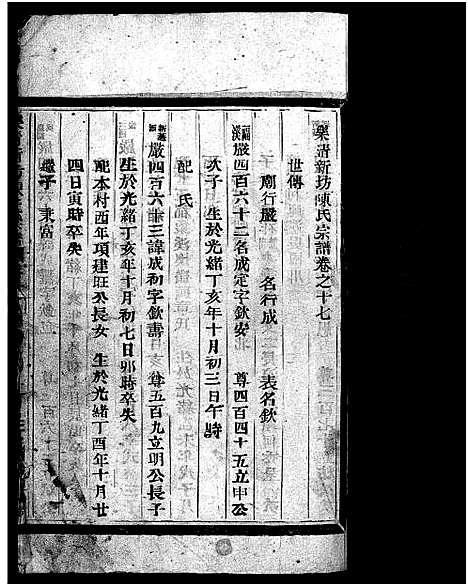 樂清新坊陳氏宗譜卷之十七
世傳
廟行嚴 名行成 表名欽
嚴四百六十二名成定字欽安 尊四百四十五立申公
次子 生於光緒丁亥年十月初三日午時
配 氏
嚴四百六 三諱成初字欽壽 尊五百九立明公長子
生於光緒丁亥年十月初七日卯時卒失
配本村酉年項建旺公長女 生於光緒丁酉年十月廿
四日寅時卒失
繼子 秉富